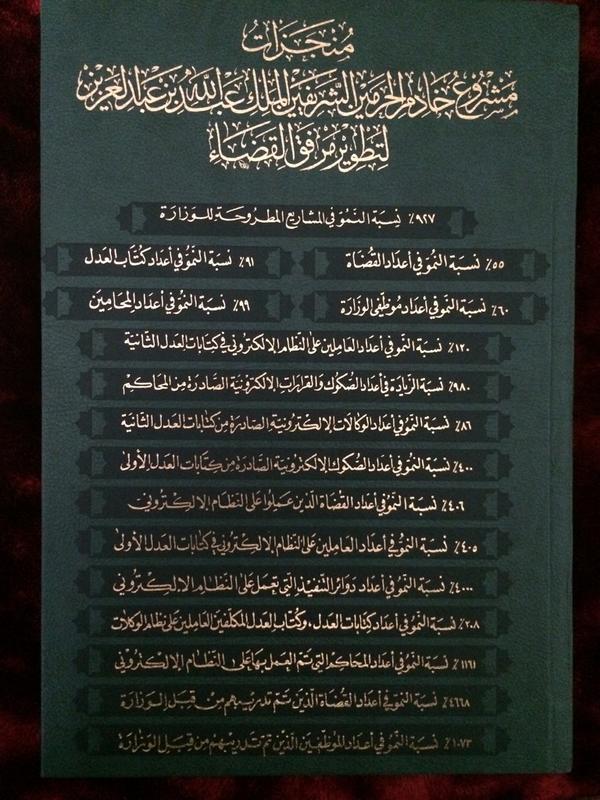 منجزات
مشروع خادم الحرمين الشريفين الملك عبدالله بن عبدالعزيز
لتطوير مرفق القضاء
٩٢٧٪ نسبة النمو في المشاريع المطروحة للوزارة
٥٥٪ نسبة النمو في أعداد القضاة
٩١٪ نسبة النمو في أعداد كتاب العدل
٦٠٪ نسبة النمو في أعداد موظفي الوزارة
٩٩٪ نسبة النمو في أعداد المحامين
١٢٠٪ نسبة النمو في أعداد العاملين على النظام الإلكتروني في كتابات العدل الثانية
٩٨٠٪ نسبة الزيادة في أعداد الصكوك والقرارات الإلكترونية الصادرة من المحاكم
٨٦٪ نسبة النمو في أعداد الوكالات الإلكترونية الصادرة من كتابات العدل الثانية
٤٠٠٪ نسبة النمو في أعداد الصكوك الإلكترونية الصادرة من كتابات العدل الأولى
٤٠٦٪ نسبة النمو في أعداد القضاة الذين عملوا على النظام الإلكتروني
٤٠٥٪ نسبة النمو في أعداد العاملين على النظام الإلكتروني في كتابات العدل الأولى
٤٠٠٠٪ نسبة النمو في أعداد دوائر التنفيذ التي تعمل على النظام الإلكتروني
٢٠٨٪ نسبة النمو في أعداد كتابات العدل، وكتاب العدل المكلفين العاملين على نظام الوكالات
١١٦١٪ نسبة النمو في أعداد المحاكم التي يتم العمل بها على النظام الإلكتروني
٤٦٦٨٪ نسبة النمو في أعداد القضاة الذين تم تدريبهم من قبل الوزارة
١٠٧٣٪ نسبة النمو في أعداد الموظفين الذين تم تدريبهم من قبل الوزارة